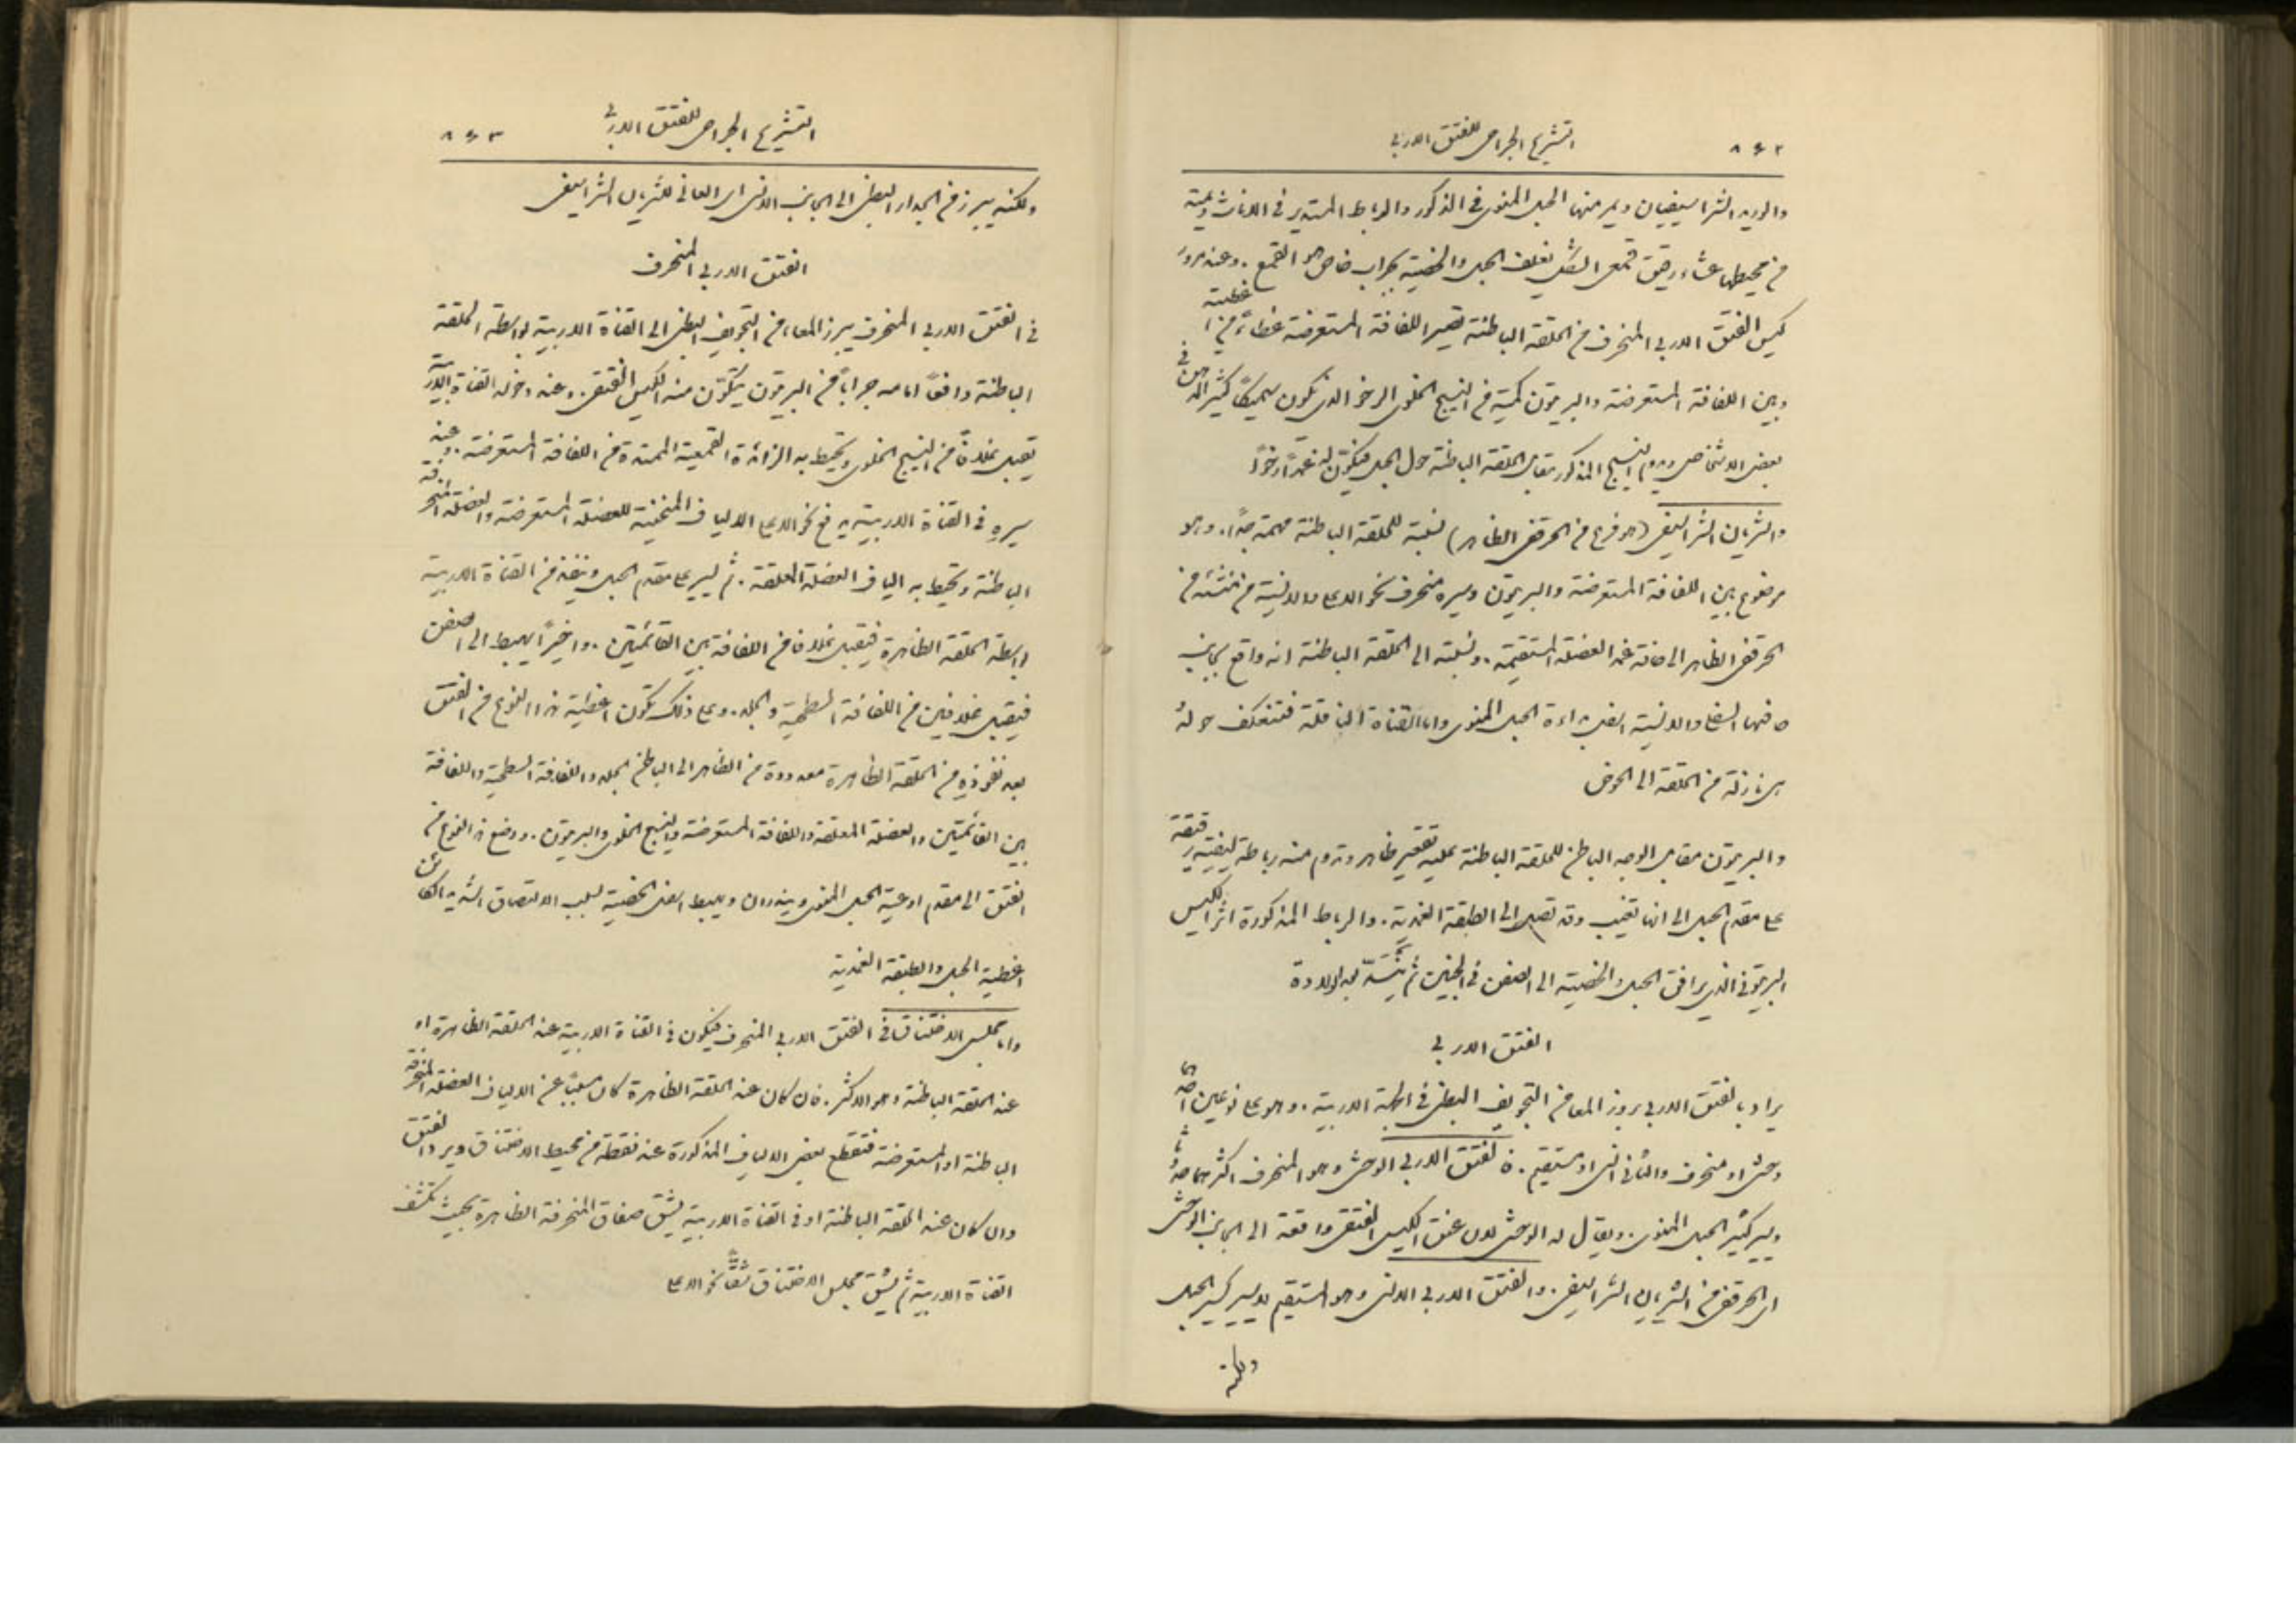 التشريح الجراحي للفتق الاربي ٨٤٢
والوريد الشراسيفيان ويمر منها الحبل المنوي في الذكور والرباط المستدير في الاناث ويمتد
من محيطها غشاء رقيق قمعي الشكل يغلف الحبل والخصية بجراب خاص هو القمع . وعند مرور
كيس الفتق الاربي المنحرف من الحلقة الباطنة تصير اللفافة المستعرضة غطاءً من اغطيته
وبين اللفافة المستعرضة والبريتون كمية من النسيج الخلوي الرخو الذي يكون سميكًا كثير الدهن في
بعض الاشخاص ويدوم النسيج المذكور مقابل الحلقة الباطنة حول الحبل فيتكون له غمدًا رخوًا
والشريان الشراسيفي (هو فرع من الحرقفي الظاهر) نسبته للحلقة الباطنة مهمة جدًا . وهو
موضوع بين اللفافة المستعرضة والبريتون وسيره منحرف نحو الاعلى والانسية من منشئه من
الحرقفي الظاهر الى حافة غمد العضلة المستقيمة . ونسبته الى الحلقة الباطنة انه واقع بجانب
حافتها السفلى والانسية اسفل بداءة الحبل المنوي واما القناة الناقلة فتنعكف حوله
وهي نازلة من الحلقة الى الحوض
والبريتون مقابل الوجه الباطن للحلقة الباطنة عليه تقعير ظاهر وتدوم منه رباطة ليفية رقيقة
على مقدم الحبل الى انها تغيب وقد تصل الى الطبقة الغمدية . والرباط المذكورة اثر الكيس
البريتوني الذي يرافق الحبل والخصية الى الصفن في الجنين ثم ينسدّ بعد الولادة
الفتق الاربي
يراد بالفتق الاربي بروز المعا من التجويف البطني في الجهة الاربية . وهو على نوعين احدهما
وحشي او منحرف والثاني انسي او مستقيم . فالفتق الاربي الوحشي وهو المنحرف اكثرهما حدوثًا
ويسير كسير الحبل المنوي . ويقال له الوحشي لان عنق الكيس الفتقي واقعة الى الجانب الوحشي
اي الحرقفي من الشريان الشراسيفي . والفتق الاربي الانسي وهو المستقيم لا يسير كسير الحبل
ولكنه
التشريح الجراحي للفتق الاربي ٨٤٣
ولكنه يبرز من الجدار البطني الى الجانب الانسي اي العاني للشريان الشراسيفي
الفتق الاربي المنحرف
في الفتق الاربي المنحرف يبرز المعاء من التجويف البطني الى القناة الاربية بواسطة الحلقة
الباطنة دافعًا امامه جرابًا من البريتون يتكون منه الكيس الفتقي . وعند دخوله القناة الاربية
يقبل غلافًا من النسيج الخلوي وتحيط به الزائدة القمعية الممتدة من اللفافة المستعرضة . وعند
سيره في القناة الاربية يرفع نحو الاعلى الالياف المنحنية للعضلة المستعرضة والعضلة المنحرفة
الباطنة وتحيط به الياف العضلة المعلقة . ثم يسير على مقدم الحبل وينفذ من القناة الاربية
بواسطة الحلقة الظاهرة فيقبل غلافًا من اللفافة بين القائمتين . واخيرًا يهبط الى الصفن
فيقبل غلافين من اللفافة السطحية والجلد . وعلى ذلك تكون اغطية هذا النوع من الفتق
بعد نفوذه من الحلقة الظاهرة معدودة من الظاهر الى الباطن الجلد واللفافة السطحية واللفافة
بين القائمتين والعضلة المعلقة واللفافة المستعرضة والنسيج الخلوي والبريتون . ووضع هذا النوع من
الفتق الى مقدم اوعية الحبل المنوي ويندر ان يهبط اسفل الخصية لسبب الالتصاق الشديد الكائن
اغطية الحبل والطبقة الغمدية
واما مجلس الاختناق في الفتق الاربي المنحرف فيكون في القناة الاربية عند الحلقة الظاهرة او
عند الحلقة الباطنة وهو الاكثر . فان كان عند الحلقة الظاهرة كان مسببًا عن الالياف العضلة المنحرفة
الباطنة او المستعرضة فتقطع بعض الالياف المذكورة عند نقطة من محيط الاختناق ويرد الفتق
وان كان عند الحلقة الباطنة او في القناة الاربية يشق صفاق المنحرفة الظاهرة بحيث تكشف
القناة الاربية ثم يشق مجلس الاختناق شقًا نحو الاعلى